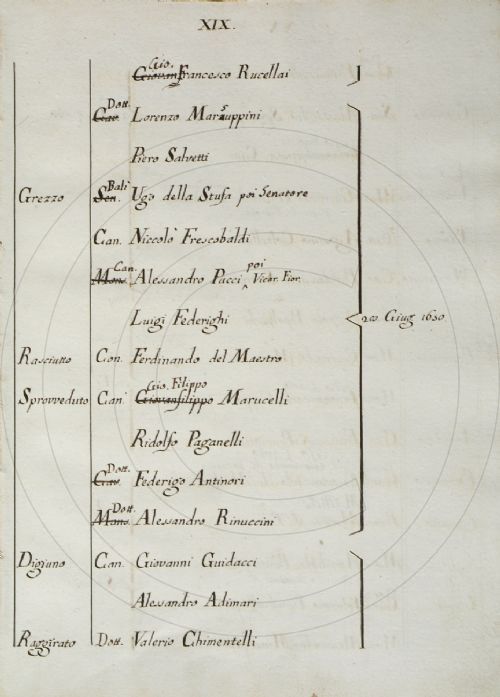 XIX.
Gio.
Giovanfrancesco Rucellai
Dott.
Cav. Lorenzo Marsuppini
Piero Salvetti
Balì
Grezzo Sen. Ugo della Stufa poi Senatore
Can. Niccolò Frescobaldi
Can. poi
Mons. Alessandro Pucci Vicar. Fior.
Luigi Federighi 20. Giug. 1650.
Rasciutto Can. Ferdinando del Maestro
Gio. Filippo
Sprovveduto Can. Giovanfilippo Marucelli
Ridolfo Paganelli
Dott.
Cav. Federigo Antinori
Dott.
Mons. Alessandro Rinuccini
Digiuno Can. Giovanni Guidacci
Alessandro Adimari
Raggirato Dott. Valerio Chimentelli